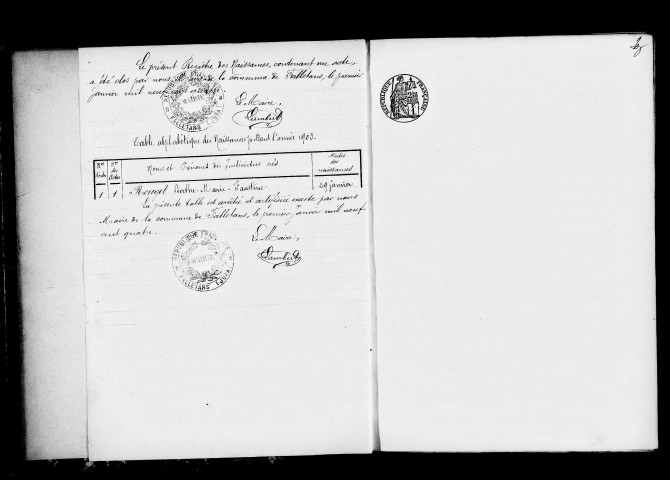 Le présent Registre des Naissances, contenant un acte,
a été clos par nous, Maire de la commune de Falletans, le premier
Janvier mil neuf cent quatre.
RÉPUBLIQUE FRANÇAISE
MAIRIE
FALLETANS (JURA)
Le Maire,
Lambert
Table alphabétique des Naissances pendant l'année 1903.
Nos d'ordre
Nos des actes
Noms et Prénoms des Individus nés
Dates des naissances
1 1 Berthe-Marie Faustine 29 janvier
La présente table est arrêtée et certifiée exacte par nous
Maire de la commune de Falletans, le premier Janvier mil neuf
cent quatre.
RÉPUBLIQUE FRANÇAISE
MAIRIE
FALLETANS (JURA)
Le Maire,
Lambert
RÉPUBLIQUE FRANÇAISE